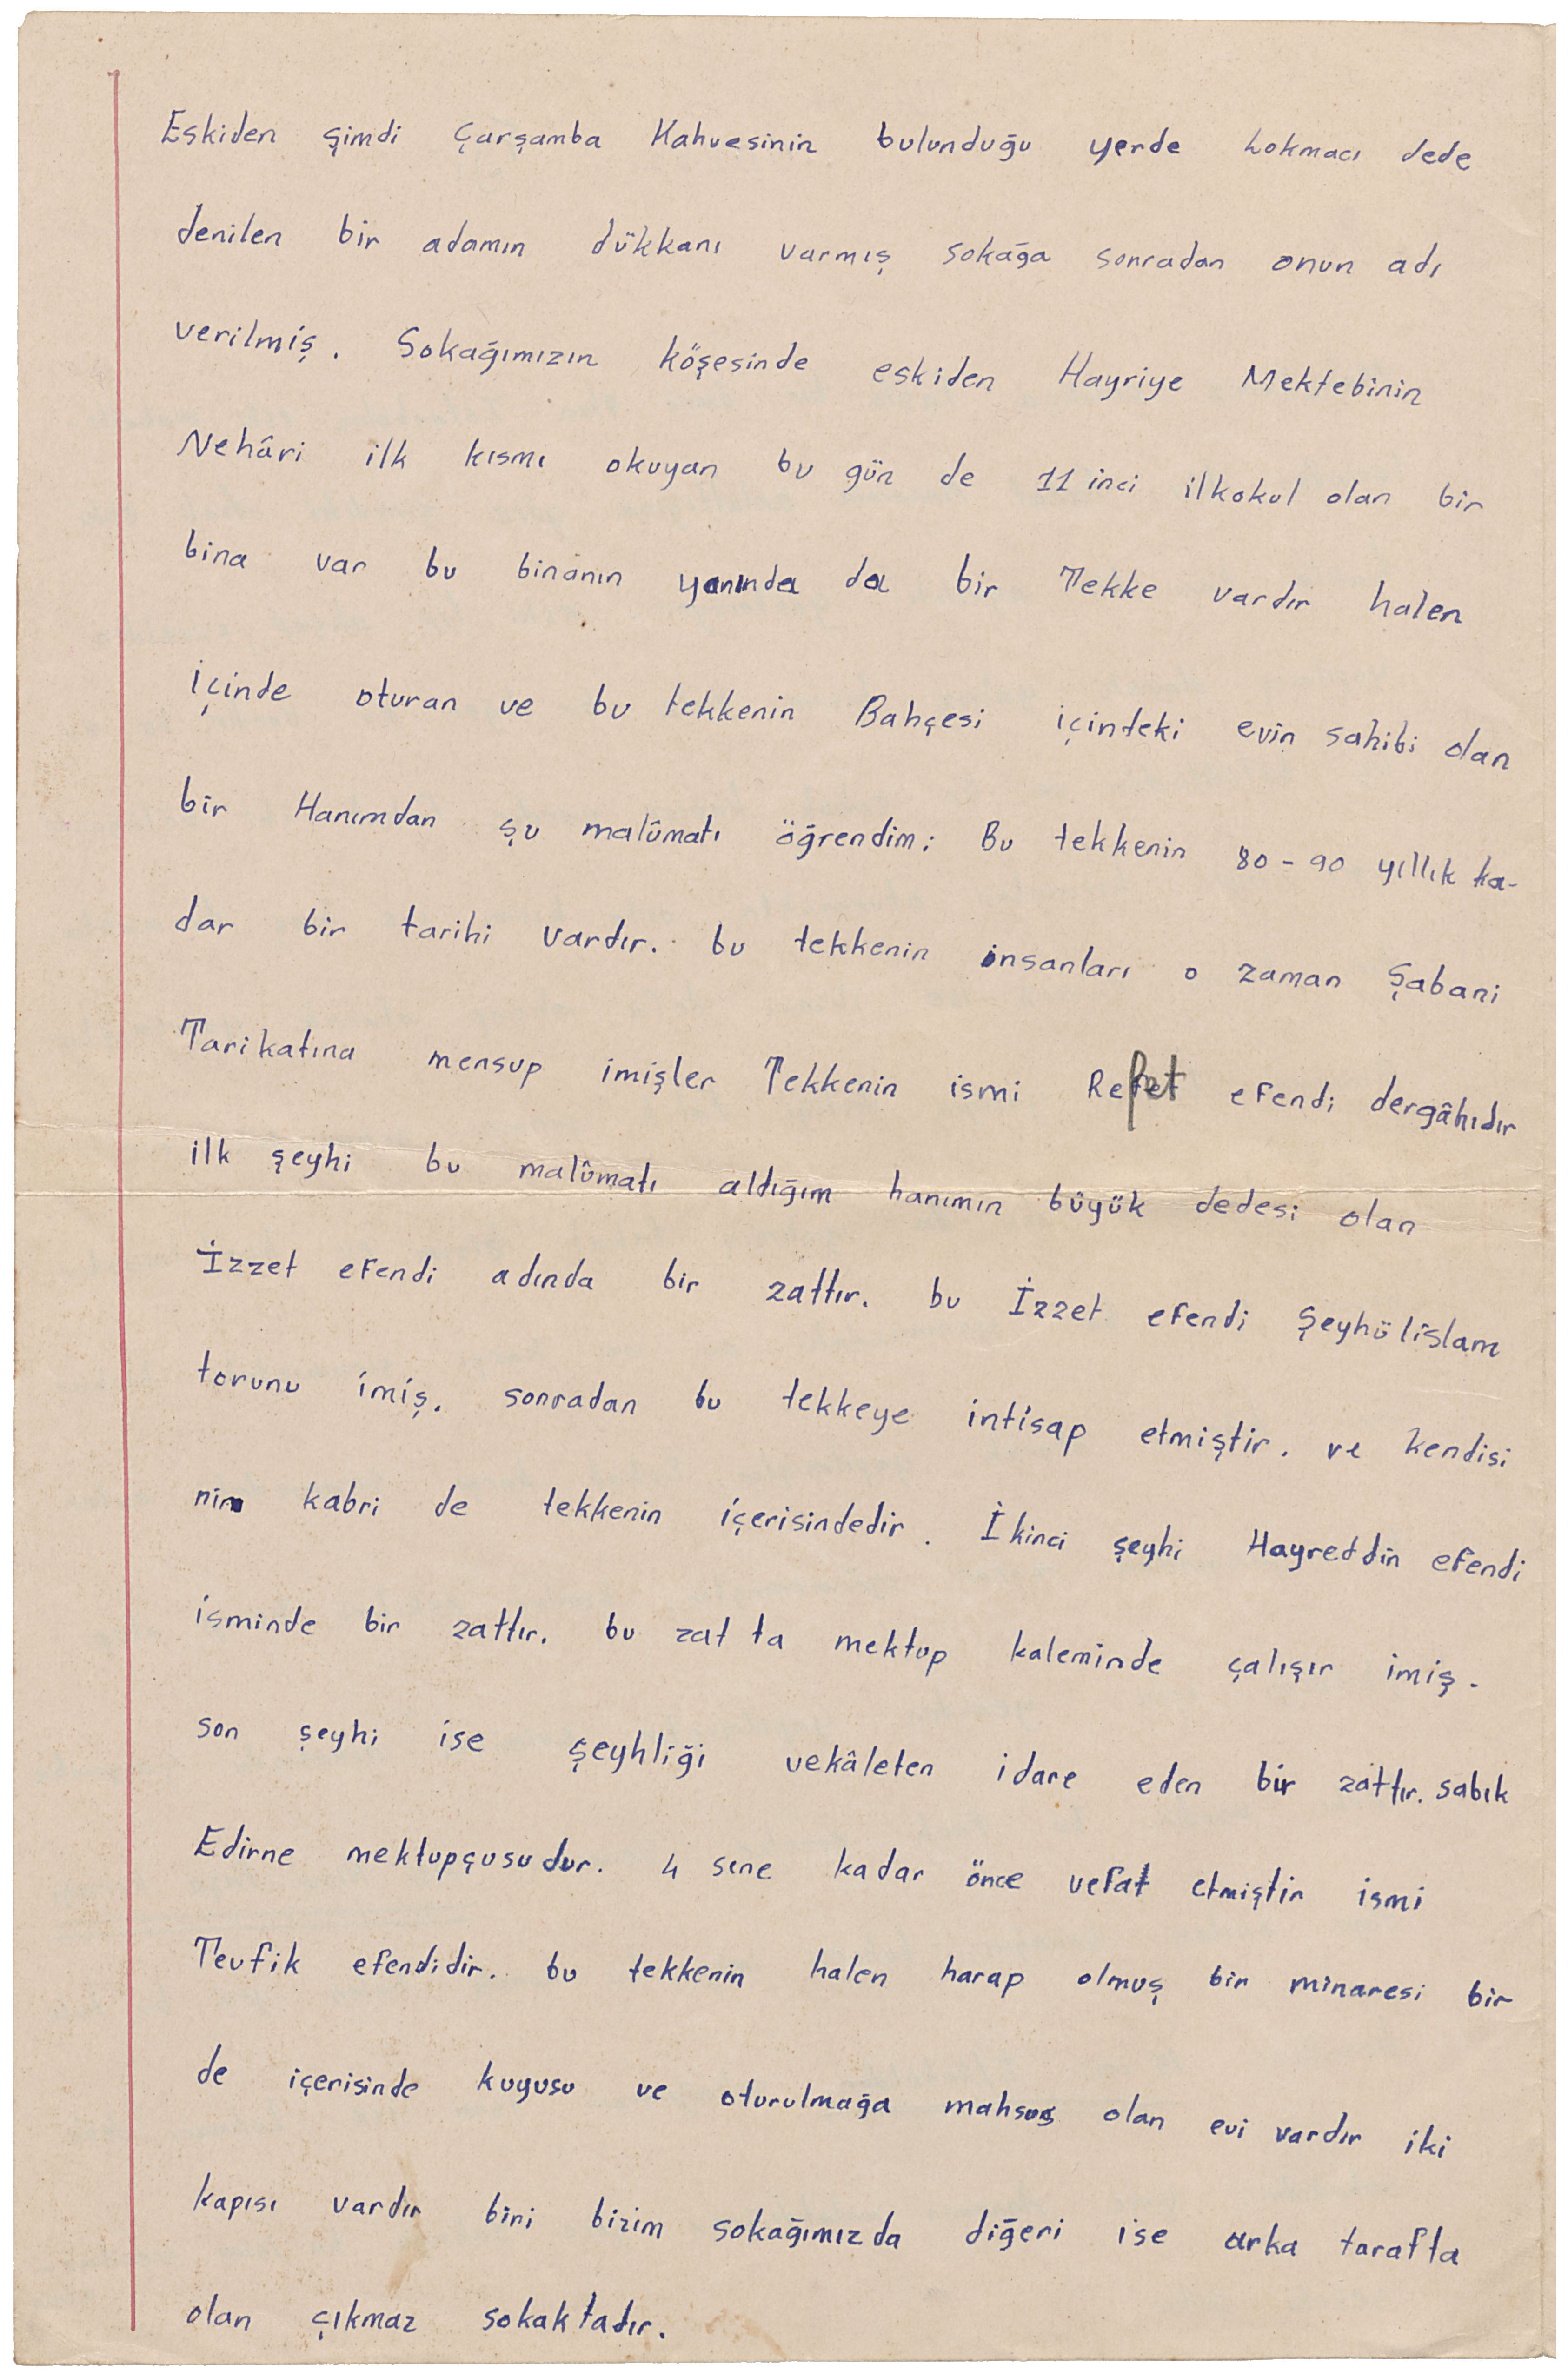 Eskiden şimdi Çarşamba Kahvesinin bulunduğu yerde Lokmacı dede
denilen bir adamın dükkanı varmış sokağa sonradan onun adı
verilmiş. Sokağımızın köşesinde eskiden Hayriye Mektebinin
Nehâri ilk kısmı okuyan bu gün de 11 inci ilkokul olan bir
bina var bu binanın yanında da bir Tekke vardır halen
içinde oturan ve bu tekkenin Bahçesi içindeki evin sahibi olan
bir Hanımdan şu malûmatı öğrendim: Bu tekkenin 80-90 yıllık ka-
dar bir tarihi vardır. bu tekkenin insanları o zaman Şabani
Tarikatına mensup imişler Tekkenin ismi Refet efendi dergâhıdır
ilk şeyhi bu malûmatı aldığım hanımın büyük dedesi olan
İzzet efendi adında bir zattır. bu İzzet efendi Şeyhülislam
torunu imiş. sonradan bu tekkeye intisap etmiştir. ve kendisi
nin kabri de tekkenin içerisindedir. İkinci şeyhi Hayreddin efendi
isminde bir zattır. bu zat ta mektup kaleminde çalışır imiş.
son şeyhi ise şeyhliği vekâleten idare eden bir zattır. sabık
Edirne mektupçusudur. 4 sene kadar önce vefat etmiştir ismi
Tevfik efendidir. bu tekkenin halen harap olmuş bir minaresi bir
de içerisinde kuyusu ve oturulmağa mahsus olan evi vardır iki
kapısı vardır biri bizim sokağımızda diğeri ise arka tarafta
olan çıkmaz sokaktadır.